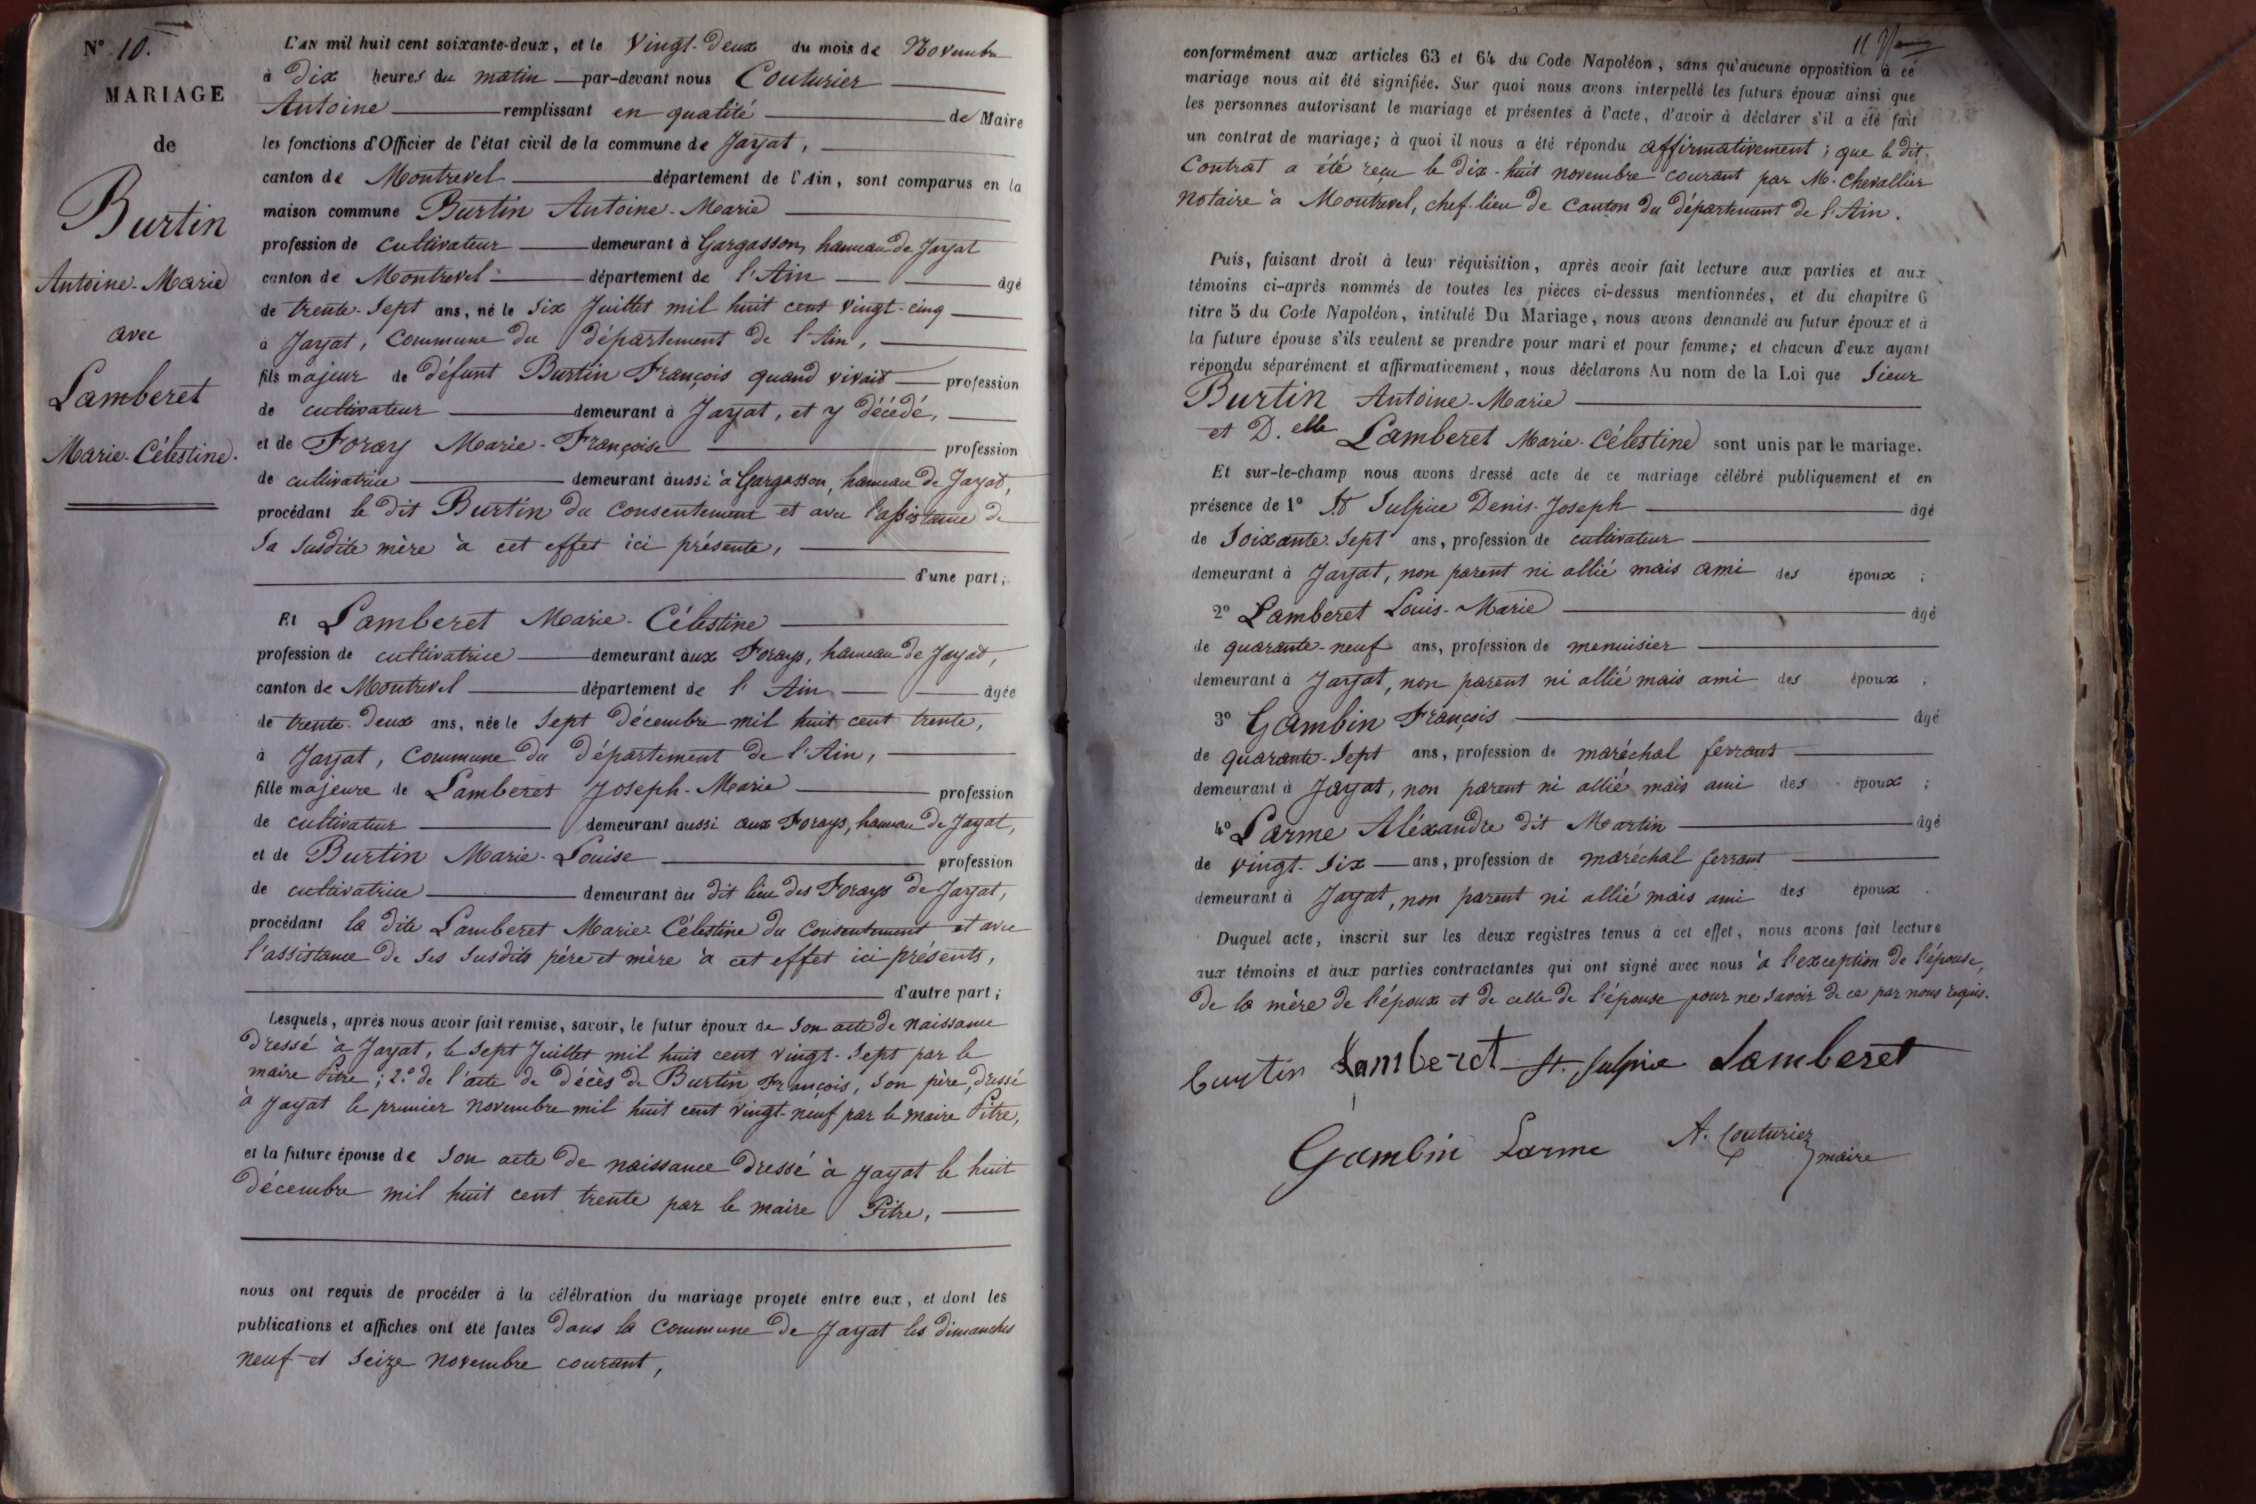 N° 10.
MARIAGE
de
Burtin
Antoine-Marie
avec
Lamberet
Marie-Célestine.
L'AN mil huit cent soixante-deux, et le Vingt-deux du mois de Novembre
à dix heures du matin par-devant nous Couturier
Antoine remplissant en qualité de Maire
les fonctions d'Officier de l'état civil de la commune de Jayat,
canton de Montrevel département de l'Ain, sont comparus en la
maison commune Burtin Antoine-Marie
profession de cultivateur demeurant à Gargasson, hameau de Jayat
canton de Montrevel département de l'Ain âgé
de trente-sept ans, né le six Juillet mil huit cent vingt-cinq
à Jayat, commune du département de l'Ain,
fils majeur de défunt Burtin François quand vivait profession
de cultivateur demeurant à Jayat, et y décédé,
et de Foray Marie-Françoise profession
de cultivatrice demeurant aussi à Gargasson, hameau de Jayat,
procédant le dit Burtin du consentement et avec l'assistance de
sa susdite mère à cet effet ici présente,
d'une part;
Et Lamberet Marie-Célestine
profession de cultivatrice demeurant aux Forays, hameau de Jayat,
canton de Montrevel département de l'Ain âgée
de trente-deux ans, née le sept décembre mil huit cent trente,
à Jayat, commune du département de l'Ain,
fille majeure de Lamberet Joseph-Marie profession
de cultivateur demeurant aussi aux Forays, hameau de Jayat,
et de Burtin Marie-Louise profession
de cultivatrice demeurant au dit lieu des Forays de Jayat,
procédant la dite Lamberet Marie-Célestine du consentement et avec
l'assistance de ses susdits père et mère à cet effet ici présents,
d'autre part;
Lesquels, après nous avoir fait remise, savoir, le futur époux de son acte de naissance
dressé à Jayat, le sept Juillet mil huit cent vingt-sept par le
maire Pitre; 2.° de l'acte de décès de Burtin François, son père, dressé
à Jayat le premier novembre mil huit cent vingt-neuf par le maire Pitre,
et la future épouse de son acte de naissance dressé à Jayat le huit
décembre mil huit cent trente par le maire Pitre,
nous ont requis de procéder à la célébration du mariage projeté entre eux, et dont les
publications et affiches ont été faites dans la commune de Jayat les dimanches
neuf et seize novembre courant,
11
conformément aux articles 63 et 64 du Code Napoléon, sans qu'aucune opposition à ce
mariage nous ait été signifiée. Sur quoi nous avons interpellé les futurs époux ainsi que
les personnes autorisant le mariage et présentes à l'acte, d'avoir à déclarer s'il a été fait
un contrat de mariage; à quoi il nous a été répondu affirmativement; que le dit
Contrat a été reçu le dix-huit novembre courant par M. Chevallier
Notaire à Montrevel, chef-lieu de canton du département de l'Ain.
Puis, faisant droit à leur réquisition, après avoir fait lecture aux parties et aux
témoins ci-après nommés de toutes les pièces ci-dessus mentionnées, et du chapitre 6
titre 5 du Code Napoléon, intitulé Du Mariage, nous avons demandé au futur époux et à
la future épouse s'ils veulent se prendre pour mari et pour femme; et chacun d'eux ayant
répondu séparément et affirmativement, nous déclarons Au nom de la Loi que Sieur
Burtin Antoine-Marie
et D.elle Lamberet Marie-Célestine sont unis par le mariage.
Et sur-le-champ nous avons dressé acte de ce mariage célébré publiquement et en
présence de 1° St Sulpice Denis-Joseph âgé
de soixante-sept ans, profession de cultivateur
demeurant à Jayat, non parent ni allié mais ami des époux;
2° Lamberet Louis-Marie âgé
de quarante-neuf ans, profession de menuisier
demeurant à Jayat, non parent ni allié mais ami des époux;
3° Gambin François âgé
de quarante-sept ans, profession de maréchal ferrant
demeurant à Jayat, non parent ni allié mais ami des époux;
4° Larme Aléxandre dit Martin âgé
de vingt-six ans, profession de maréchal ferrant
demeurant à Jayat, non parent ni allié mais ami des époux.
Duquel acte, inscrit sur les deux registres tenus à cet effet, nous avons fait lecture
aux témoins et aux parties contractantes qui ont signé avec nous à l'exception de l'épouse,
de la mère de l'époux et de celle de l'épouse pour ne savoir de ce par nous requis.
burtin Lamberet St. Sulpice Lamberet
Gambin Larme A. Couturier
maire